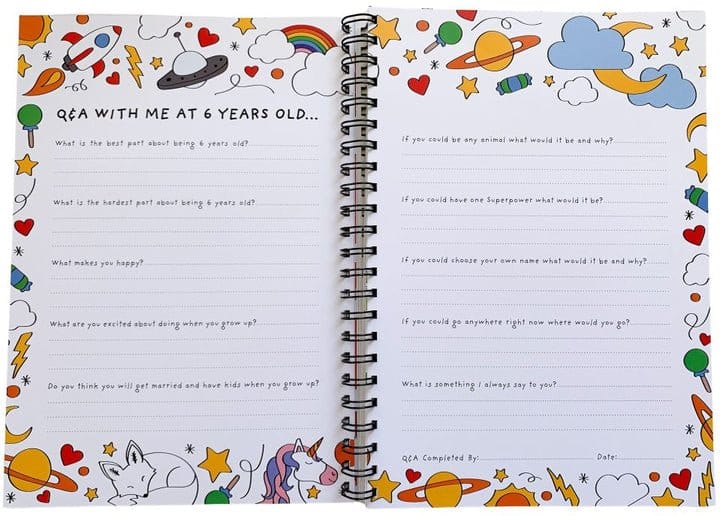 Q&A WITH ME AT 6 YEARS OLD...
What is the best part about being 6 years old?
What is the hardest part about being 6 years old?
What makes you happy?
What are you excited about doing when you grow up?
Do you think you will get married and have kids when you grow up?
If you could be any animal what would it be and why?
If you could have one Superpower what would it be?
If you could choose your own name what would it be and why?
If you could go anywhere right now where would you go?
What is something I always say to you?
Q&A Completed By: Date: